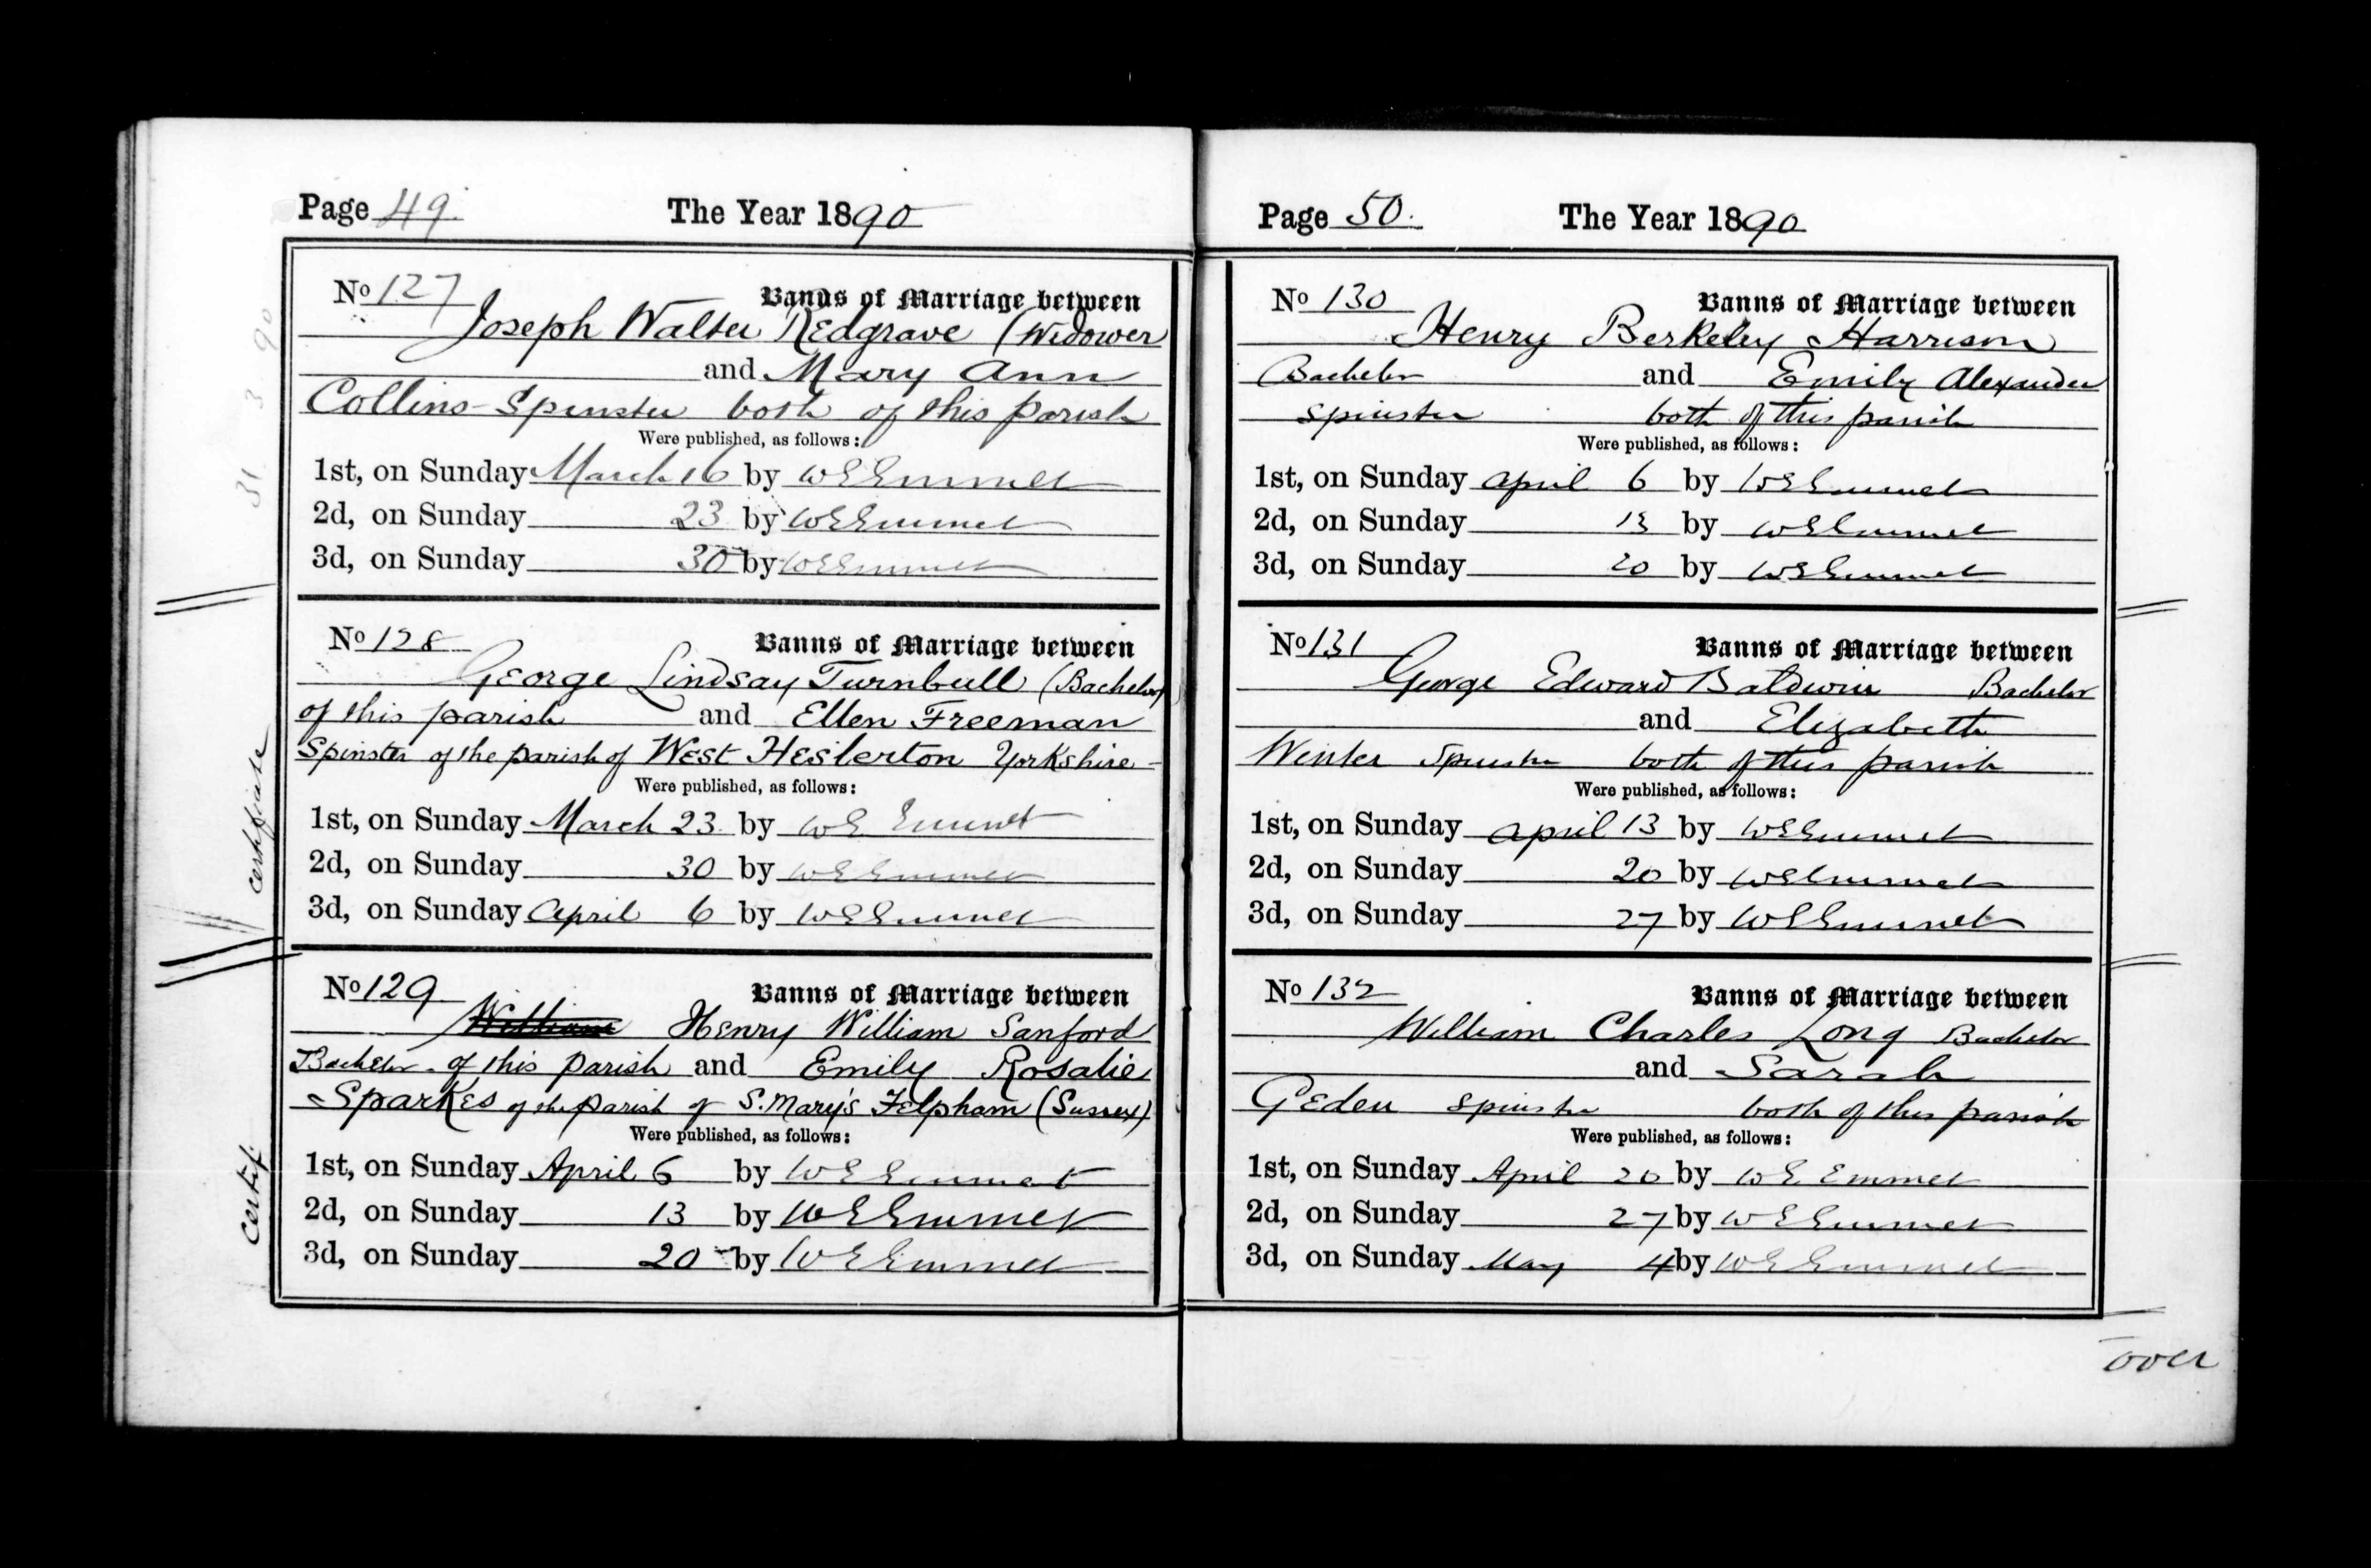 Page 49. The Year 1890
No 127 Banns of Marriage between
Joseph Walter Redgrave (Widower
and Mary Ann
Collins - Spinster both of this parish
Were published, as follows:
1st, on Sunday March 16 by WE Emmet
2d, on Sunday 23 by WE Emmet
3d, on Sunday 30 by WE Emmet
31 3 90
No 128 Banns of Marriage between
George Lindsay Turnbull (Bachelor)
of this parish and Ellen Freeman
Spinster of the parish of West Heslerton Yorkshire -
Were published, as follows:
1st, on Sunday March 23 by WE Emmet
2d, on Sunday 30 by WE Emmet
3d, on Sunday April 6 by WE Emmet
certificate
No 129 Banns of Marriage between
William Henry William Sanford
Bachelor of this parish and Emily Rosalie
Sparkes of the parish of S. Mary's Felpham (Sussex)
Were published, as follows:
1st, on Sunday April 6 by WE Emmet
2d, on Sunday 13 by WE Emmet
3d, on Sunday 20 by WE Emmet
certif
Page 50. The Year 1890
No 130 Banns of Marriage between
Henry Berkeley Harrison
Bachelor and Emily Alexander
Spinster both of this parish
Were published, as follows:
1st, on Sunday April 6 by WE Emmet
2d, on Sunday 13 by WE Emmet
3d, on Sunday 20 by WE Emmet
No 131 Banns of Marriage between
George Edward Baldwin Bachelor
and Elizabeth
Winter Spinster both of this parish
Were published, as follows:
1st, on Sunday April 13 by WE Emmet
2d, on Sunday 20 by WE Emmet
3d, on Sunday 27 by WE Emmet
No 132 Banns of Marriage between
William Charles Long Bachelor
and Sarah
Geden Spinster both of this parish
Were published, as follows:
1st, on Sunday April 20 by WE Emmet
2d, on Sunday 27 by WE Emmet
3d, on Sunday May 4 by WE Emmet
over